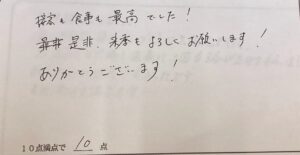 接客も食事も最高でした!
是非、来季もよろしくお願いします!
ありがとうございます!
10点満点で 10 点